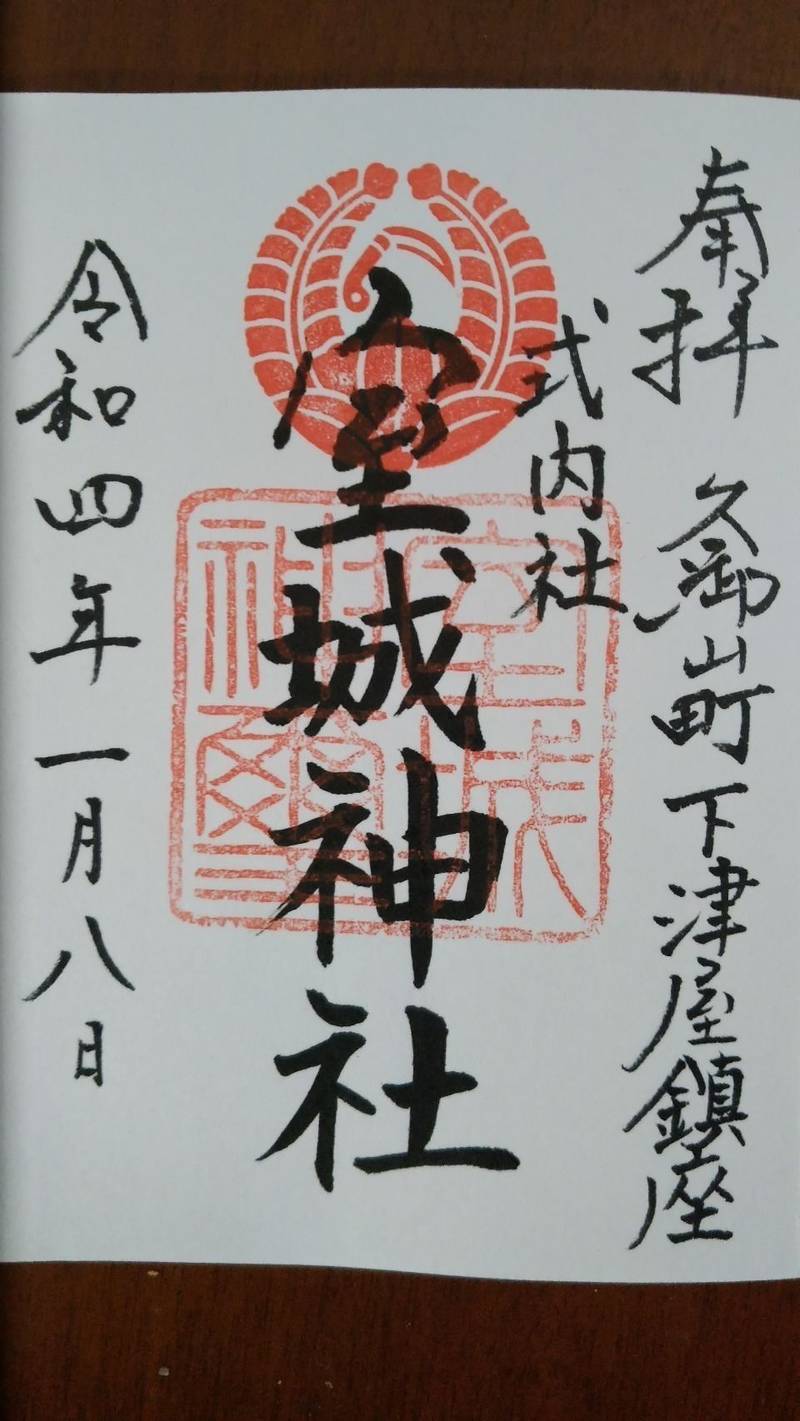 奉拝 久御山町下津屋鎮座
式内社
室城神社
令和四年一月八日
室城
神璽